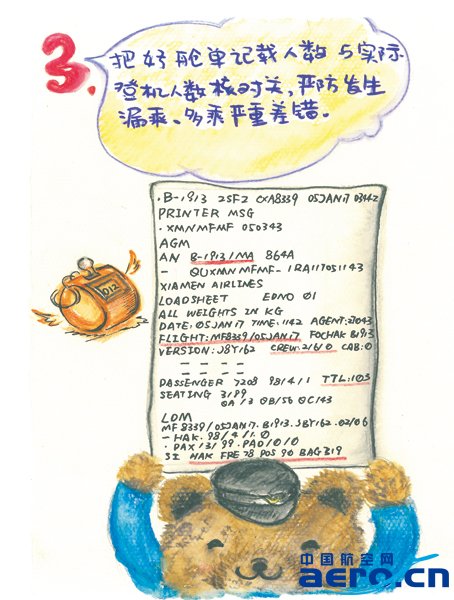 3.
把好舱单记载人数与实际
登机人数核对关,严防发生
漏乘、多乘严重差错。
·B-1913 25F2 CXA8339 05JAN17 0342
PRINTER MSG
·XMNMFMF 050343
AGM
AN B-1913/MA 864A
- QUXMNMFMF-1RA117051143
XIAMEN AIRLINES
LOADSHEET EDNO 01
ALL WEIGHTS IN KG
DATE:05JAN17 TIME:1142 AGENT:27043
FLIGHT:MF8339/05JAN17 FOCHAK B1913
VERSION:J8Y162 CREW:2/6/0 CAB:0
- - - -
- - - -
PASSENGER 7208 98/4/1 TTL:103
SEATING 3/99
0A/3 0B/56 0C/43
LDM
MF8339/05JAN17.B1913.J8Y162.02/06
-HAK.98/4/1.0
·PAX/3/99.PAD/0/0
SI HAK FRE78 POS 90 BAG319
012
中国航空网
aero.cn